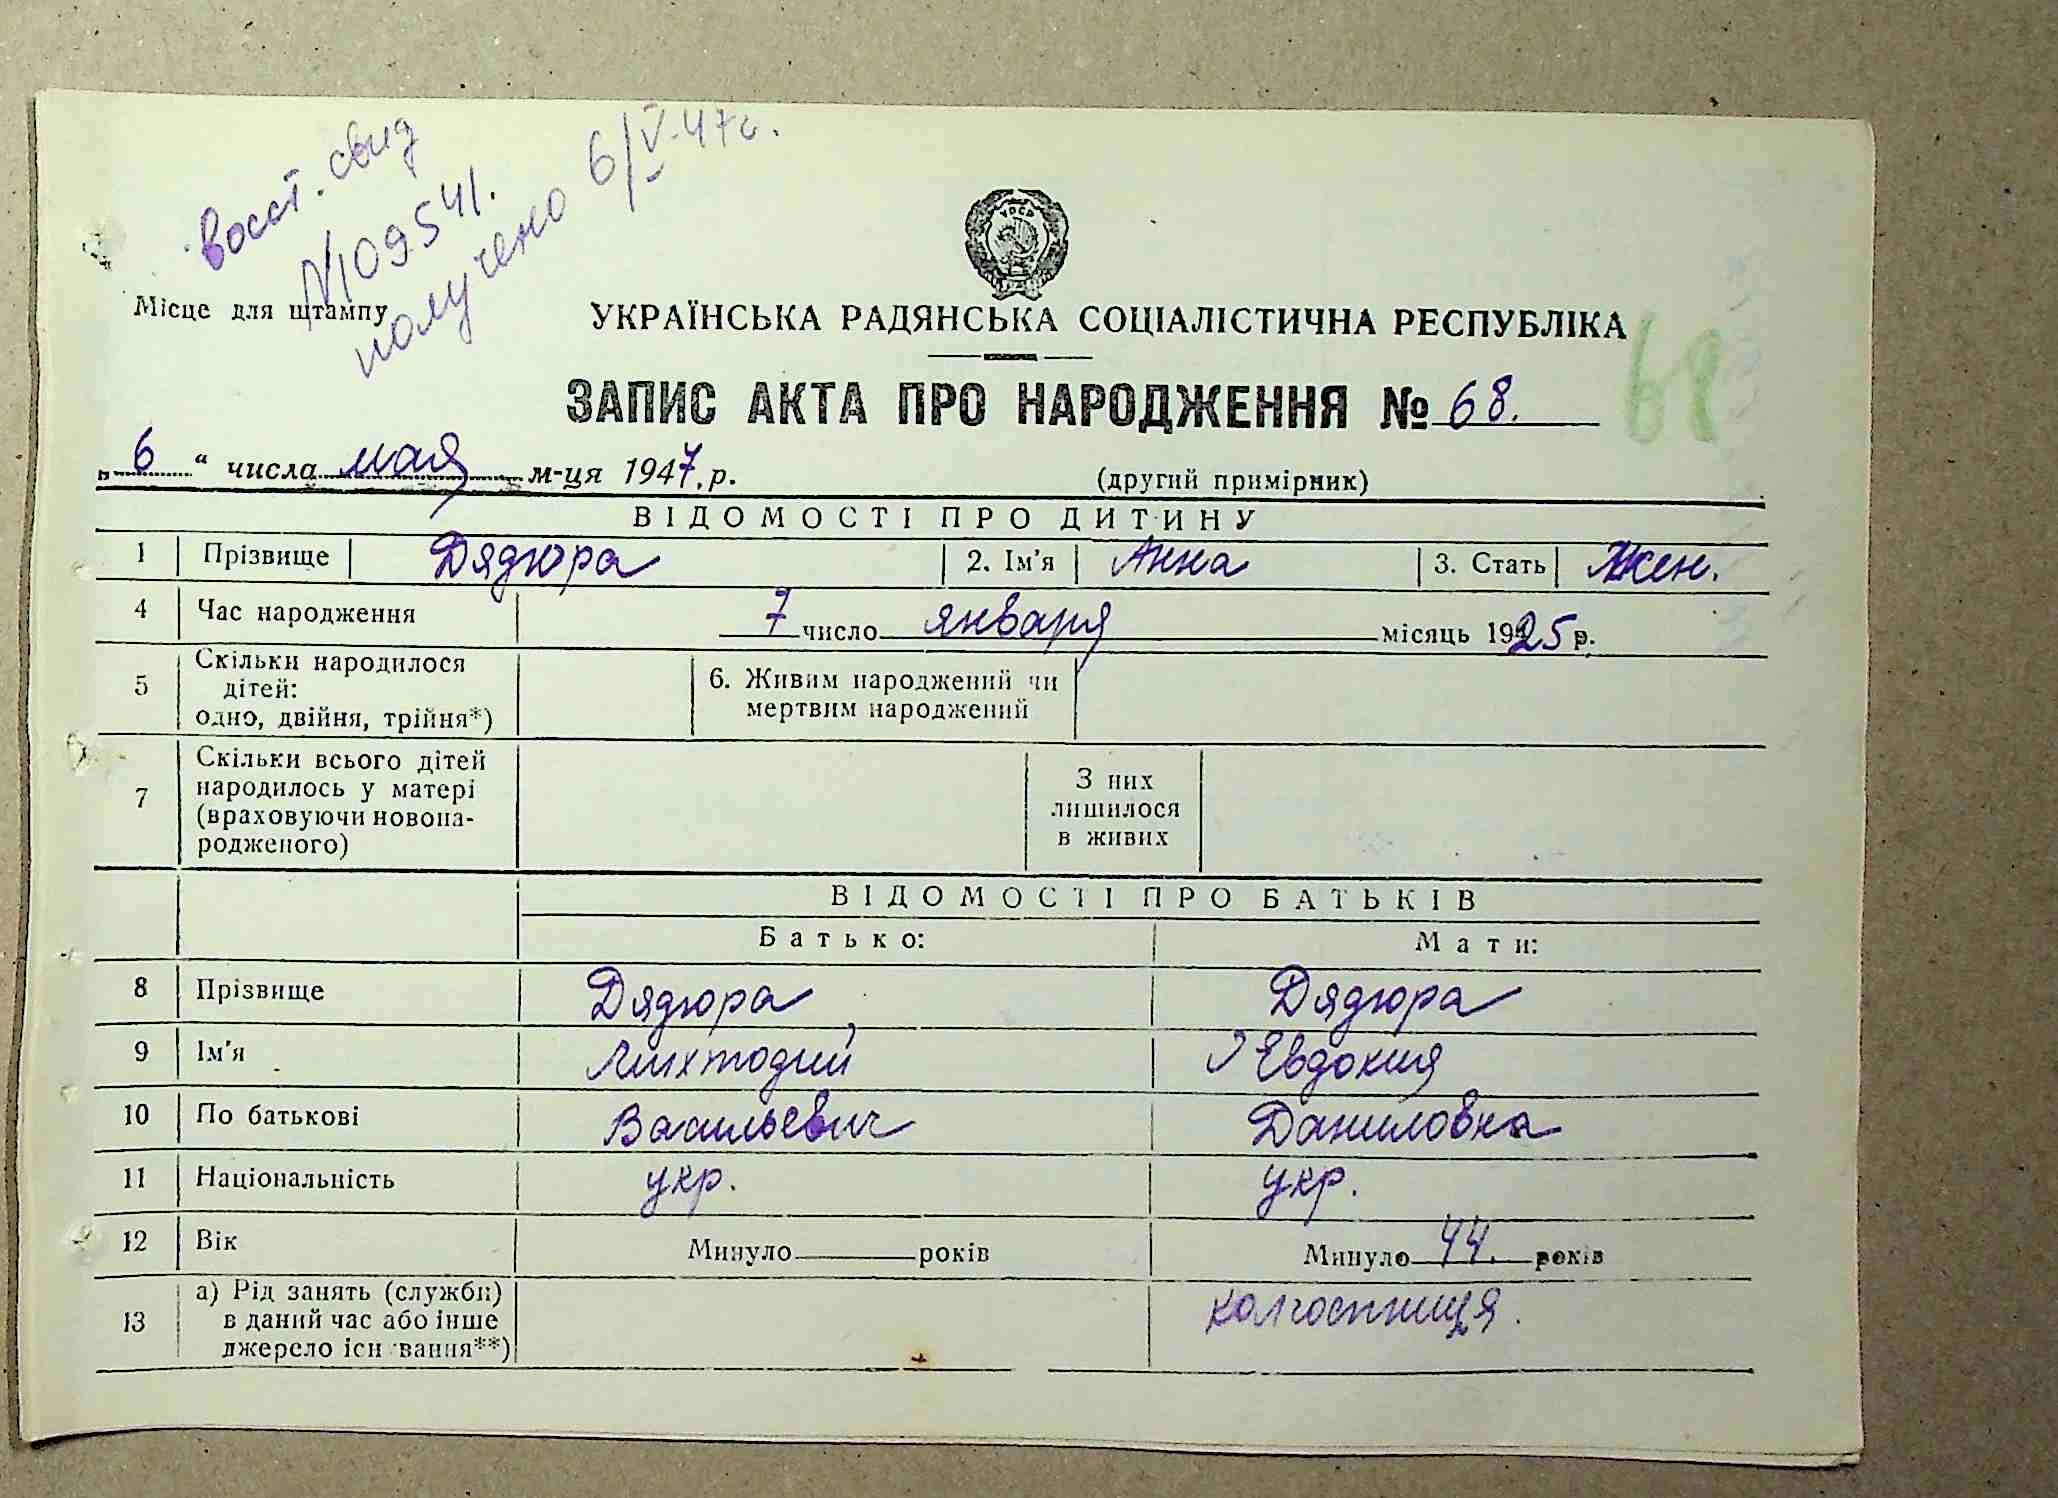 восст. свид
№109541.
получено 6/V-47г.
УРСР
Місце для штампу
УКРАЇНСЬКА РАДЯНСЬКА СОЦІАЛІСТИЧНА РЕСПУБЛІКА
68
ЗАПИС АКТА ПРО НАРОДЖЕННЯ № 68.
„6“ числа мая м-ця 1947 р.
(другий примірник)
ВІДОМОСТІ ПРО ДИТИНУ
1 Прізвище Дядюра 2. Ім'я Анна 3. Стать Жен.
4 Час народження 7 число января місяць 1925 р.
5 Скільки народилося
дітей:
одно, двійня, трійня*)
6. Живим народжений чи
мертвим народжений
7 Скільки всього дітей
народилось у матері
(враховуючи новона-
родженого)
З них
лишилося
в живих
ВІДОМОСТІ ПРО БАТЬКІВ
Батько: Мати:
8 Прізвище Дядюра Дядюра
9 Ім'я Евдокия
10 По батькові Васильевич Даниловна
11 Національність укр. укр.
12 Вік Минуло років Минуло 44. років
13 а) Рід занять (служби)
в даний час або інше
джерело існ вання**)
колгоспниця.